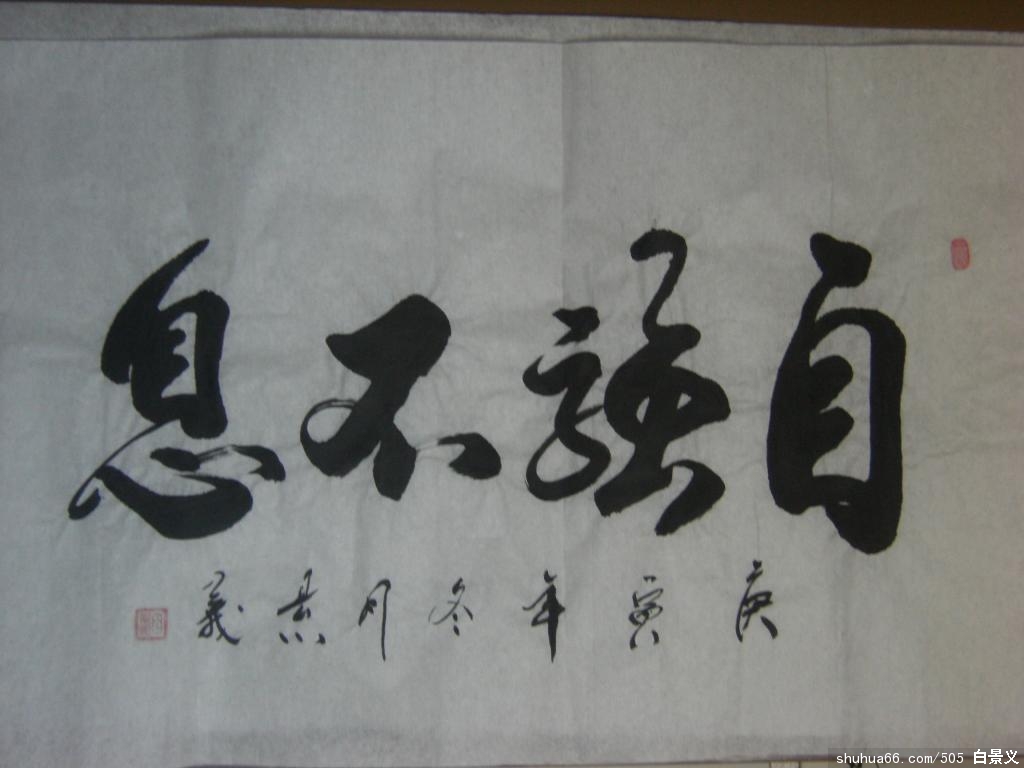 自強不息
庚寅年冬月景義
shuhua66.com/505 白景义